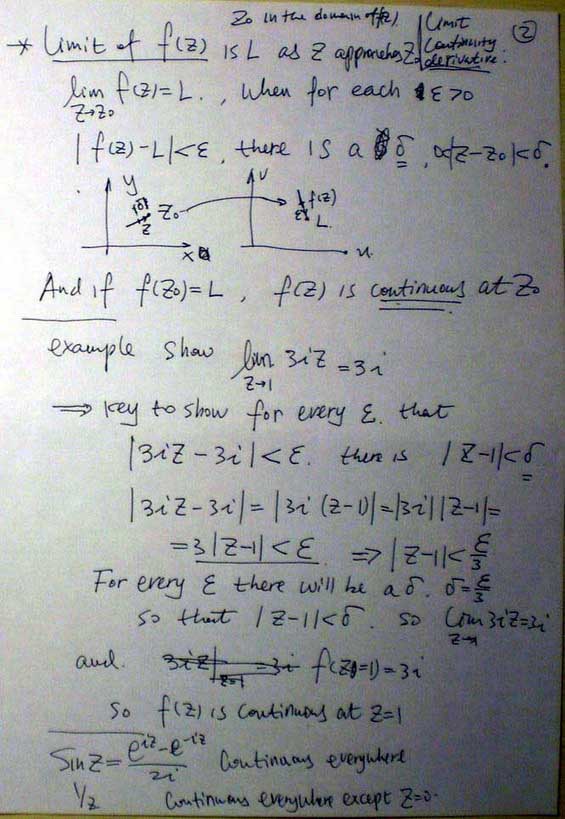 Z₀ in the domain of f(z)
②
Limit
Continuity
derivative:
* Limit of f(z) is L as z approaches Z₀
lim f(z) = L. , when for each ε>0
z→z₀
|f(z)-L|<ε, there is a δ, 0<|z-z₀|<δ.
y
δ
Z₀
z
x
v
f(z)
ε
L
u
And if f(z₀)=L, f(z) is continuous at Z₀
example show lim 3iz = 3i
z→1
⇒ key to show for every ε. that
|3iz-3i|<ε. there is |z-1|<δ
|3iz-3i|=|3i(z-1)|=|3i||z-1|=
=3|z-1|<ε ⇒ |z-1|<ε/3
For every ε there will be a δ. δ=ε/3
so that |z-1|<δ. so lim 3iz=3i
z→1
and. f(z₀=1)=3i
so f(z) is continuous at z=1
Sin z = (e^{iz}-e^{-iz})/2i Continuous everywhere
1/z Continuous everywhere except z=0.